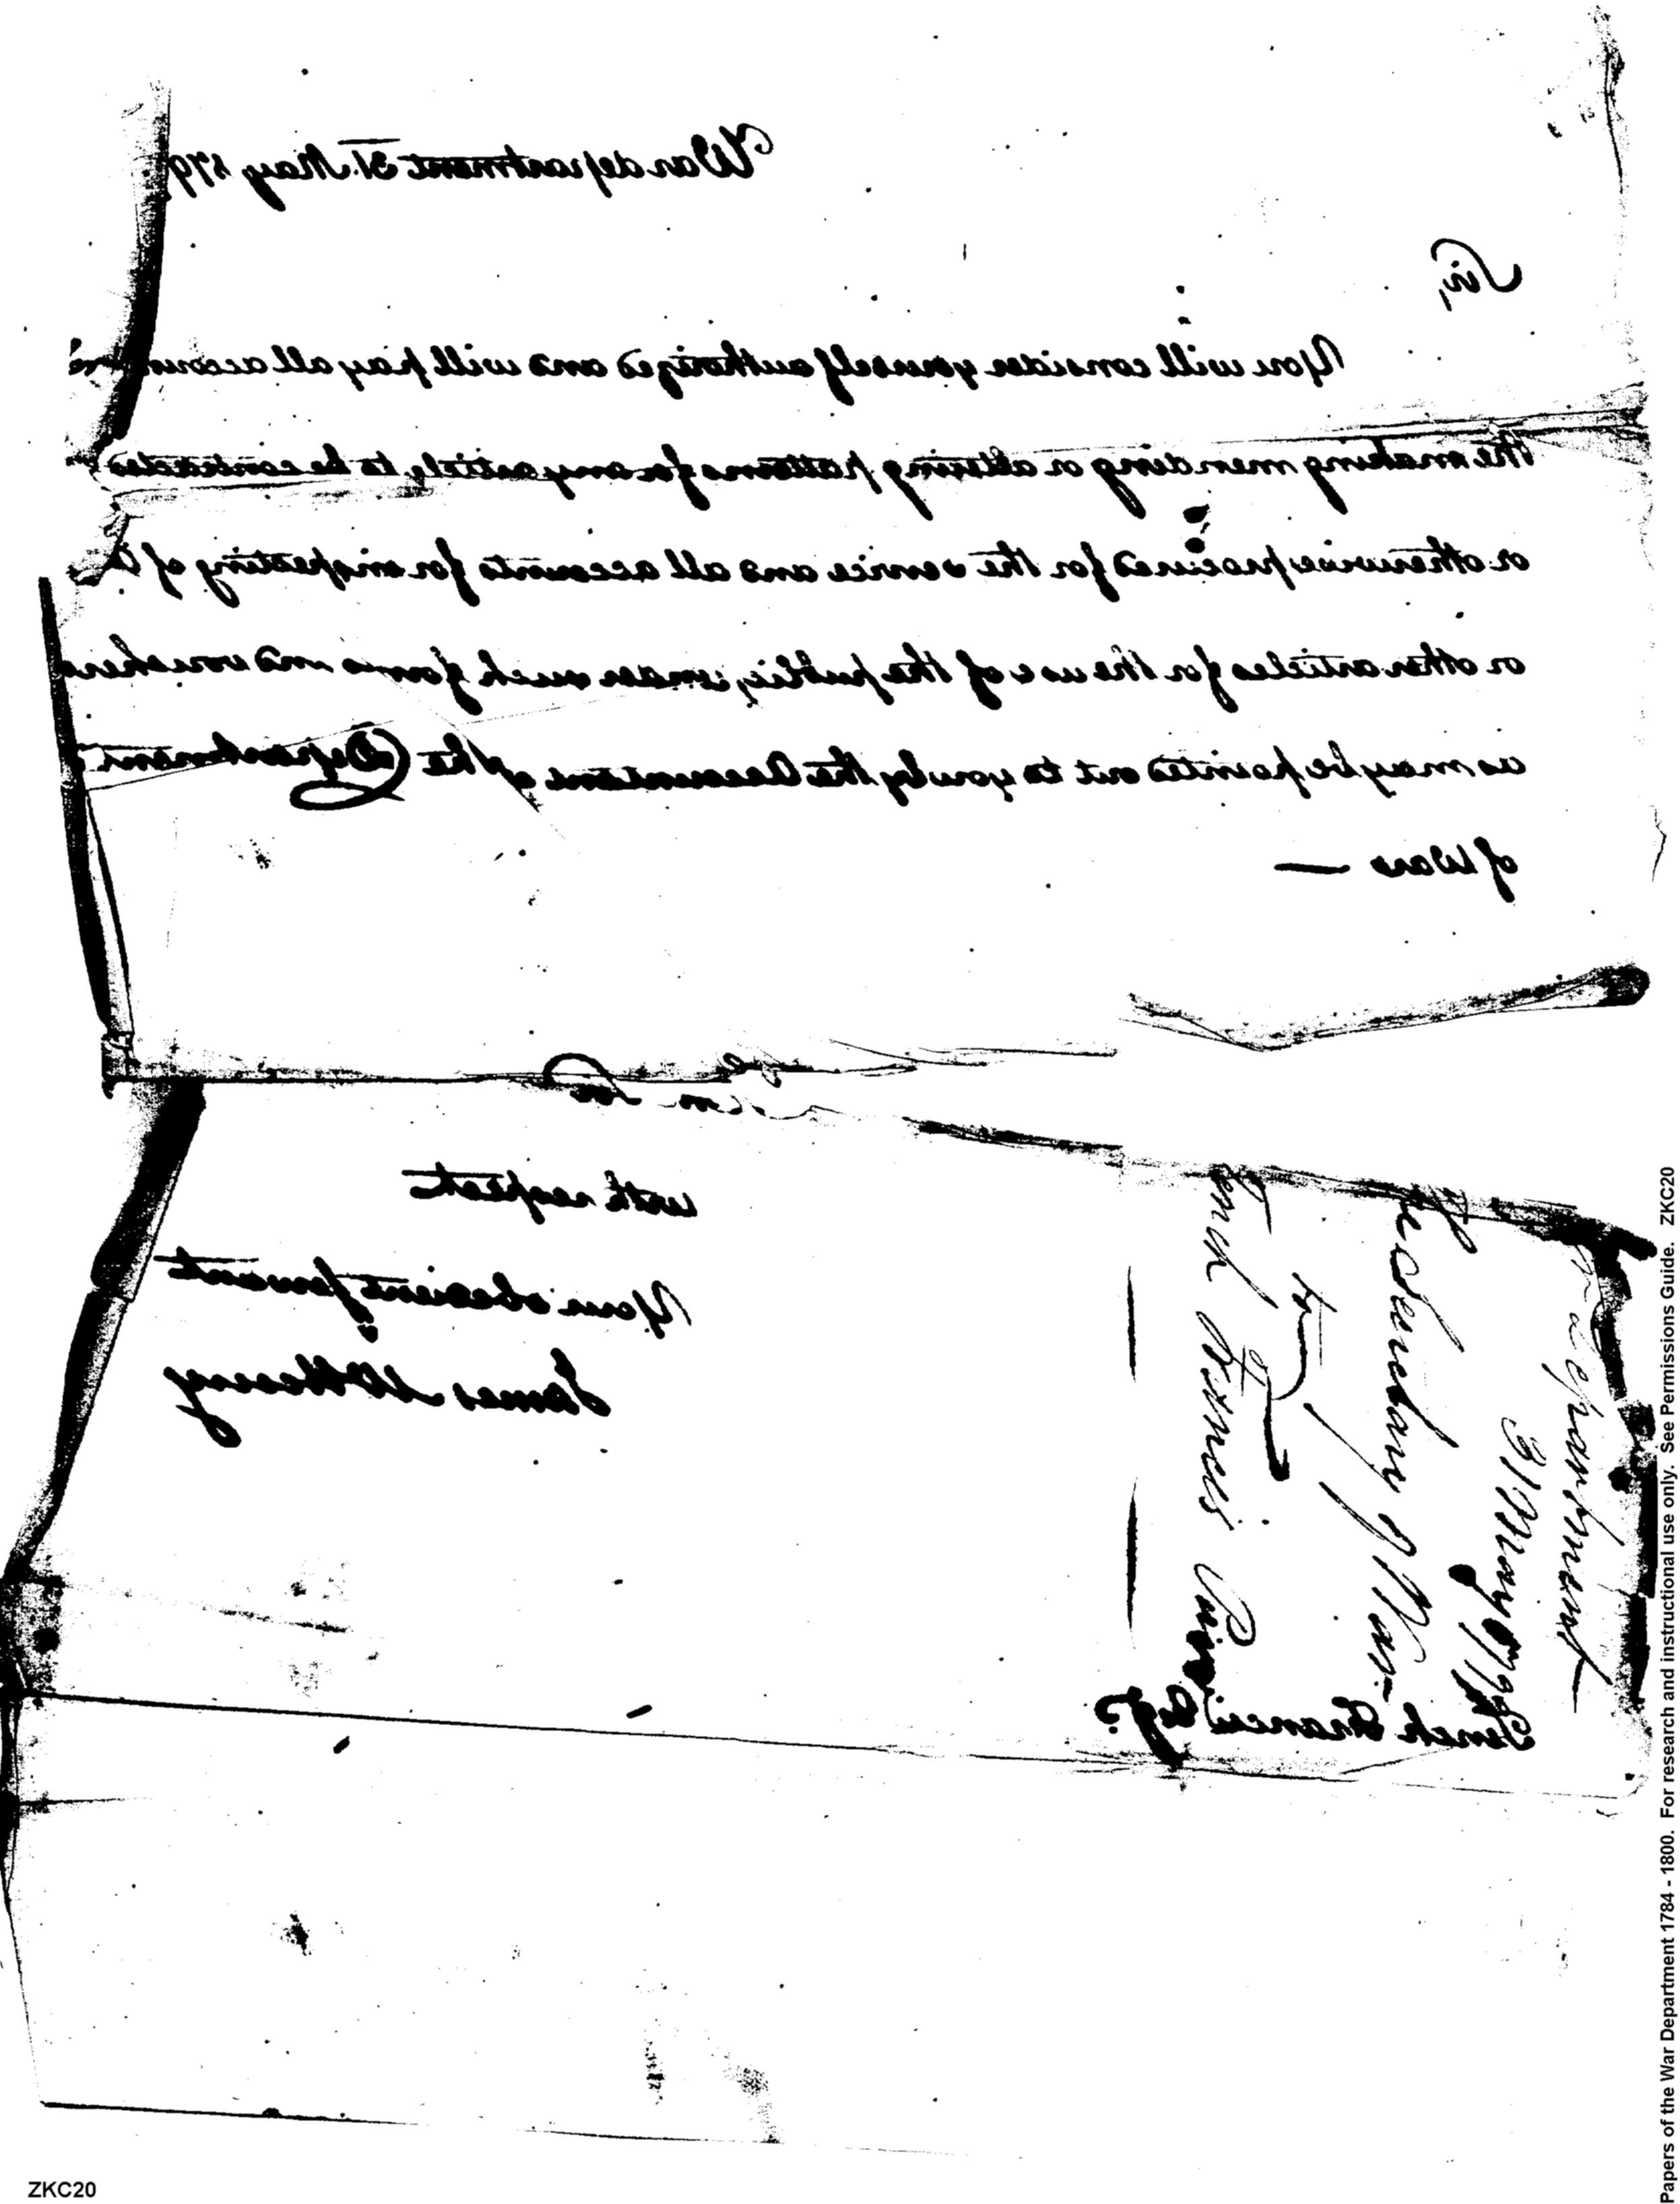 War department 31. May 179
Sir,
You will consider yourself authorized and will pay all accoun
the making mending or altering patterns for any article, to be contracted
or otherwise procured for the service and all accounts for inspecting of
or other articles for the use of the public, under such forms and vouchers
as may be pointed out to you by the Accountant of the Department
of War —
I am Sir
with respect
Your obedient servant
James McHenry
Tench Francis Esqr.
department
31 May 179
Secretary of War
to
Tench Francis
Papers of the War Department 1784 - 1800. For research and instructional use only. See Permissions Guide. ZKC20
ZKC20